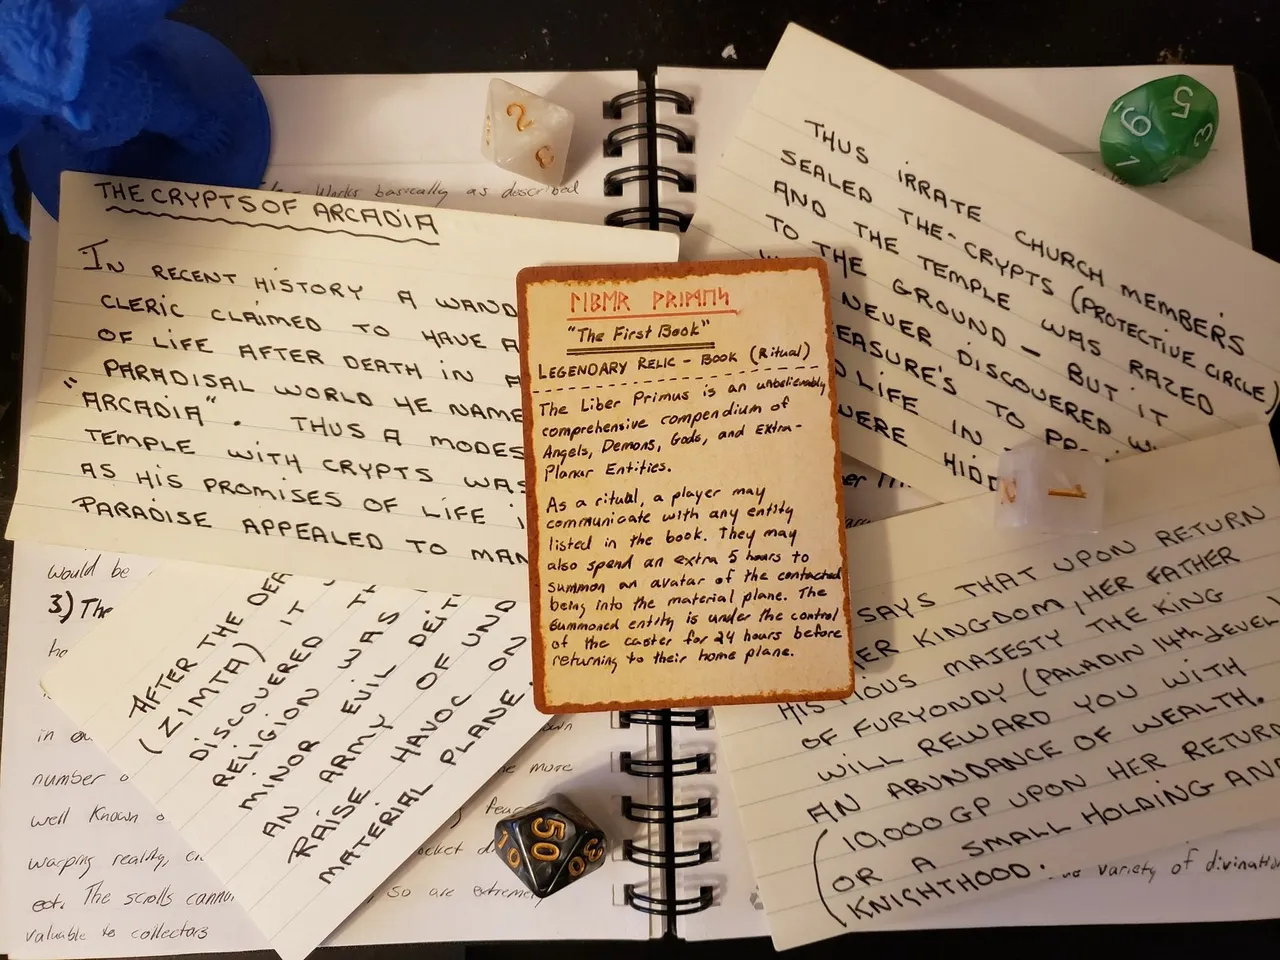 THE CRYPTS OF ARCADIA
IN RECENT HISTORY A WAND
CLERIC CLAIMED TO HAVE A
OF LIFE AFTER DEATH IN A
" PARADISAL WORLD HE NAME
"ARCADIA". THUS A MODES
TEMPLE WITH CRYPTS WAS
AS HIS PROMISES OF LIFE I
PARADISE APPEALED TO MAN
THUS IRRATE CHURCH MEMBERS
SEALED THE-CRYPTS (PROTECTIVE CIRCLE)
AND THE TEMPLE WAS RAZED
TO THE GROUND - BUT IT
NEVER DISCOVERED W
EASURE'S TO PR
D LIFE IN
WERE HIDD
ᛚᛁᛒᛖᚱ ᚹᚱᛁᛗᚢᛋ
"The First Book"
LEGENDARY RELIC - BOOK (Ritual)
The Liber Primus is an unbelievably
comprehensive compendium of
Angels, Demons, Gods, and Extra-
Planar Entities.
As a ritual, a player may
communicate with any entity
listed in the book. They may
also spend an extra 5 hours to
summon an avatar of the contacted
being into the material plane. The
summoned entity is under the control
of the caster for 24 hours before
returning to their home plane.
AFTER THE DEA
(ZIMTA) IT
DISCOVERED TH
RELIGION WAS
MINOR EVIL DEIT
AN ARMY OF UND
RAISE HAVOC ON
MATERIAL PLANE
SAYS THAT UPON RETURN
HER KINGDOM, HER FATHER
HIS PIOUS MAJESTY THE KING
OF FURYONDY (PALADIN 14th LEVEL)
WILL REWARD YOU WITH
AN ABUNDANCE OF WEALTH.
(10,000 GP UPON HER RETURN
OR A SMALL HOLDING AND
KNIGHTHOOD.
Works basically as described
would be
3) The
in
number o
well Known
warping reality,
ect. The scrolls canno
valuable to collectors
the more
so are extremely
variety of divination
2
5
6
3
1
1
50